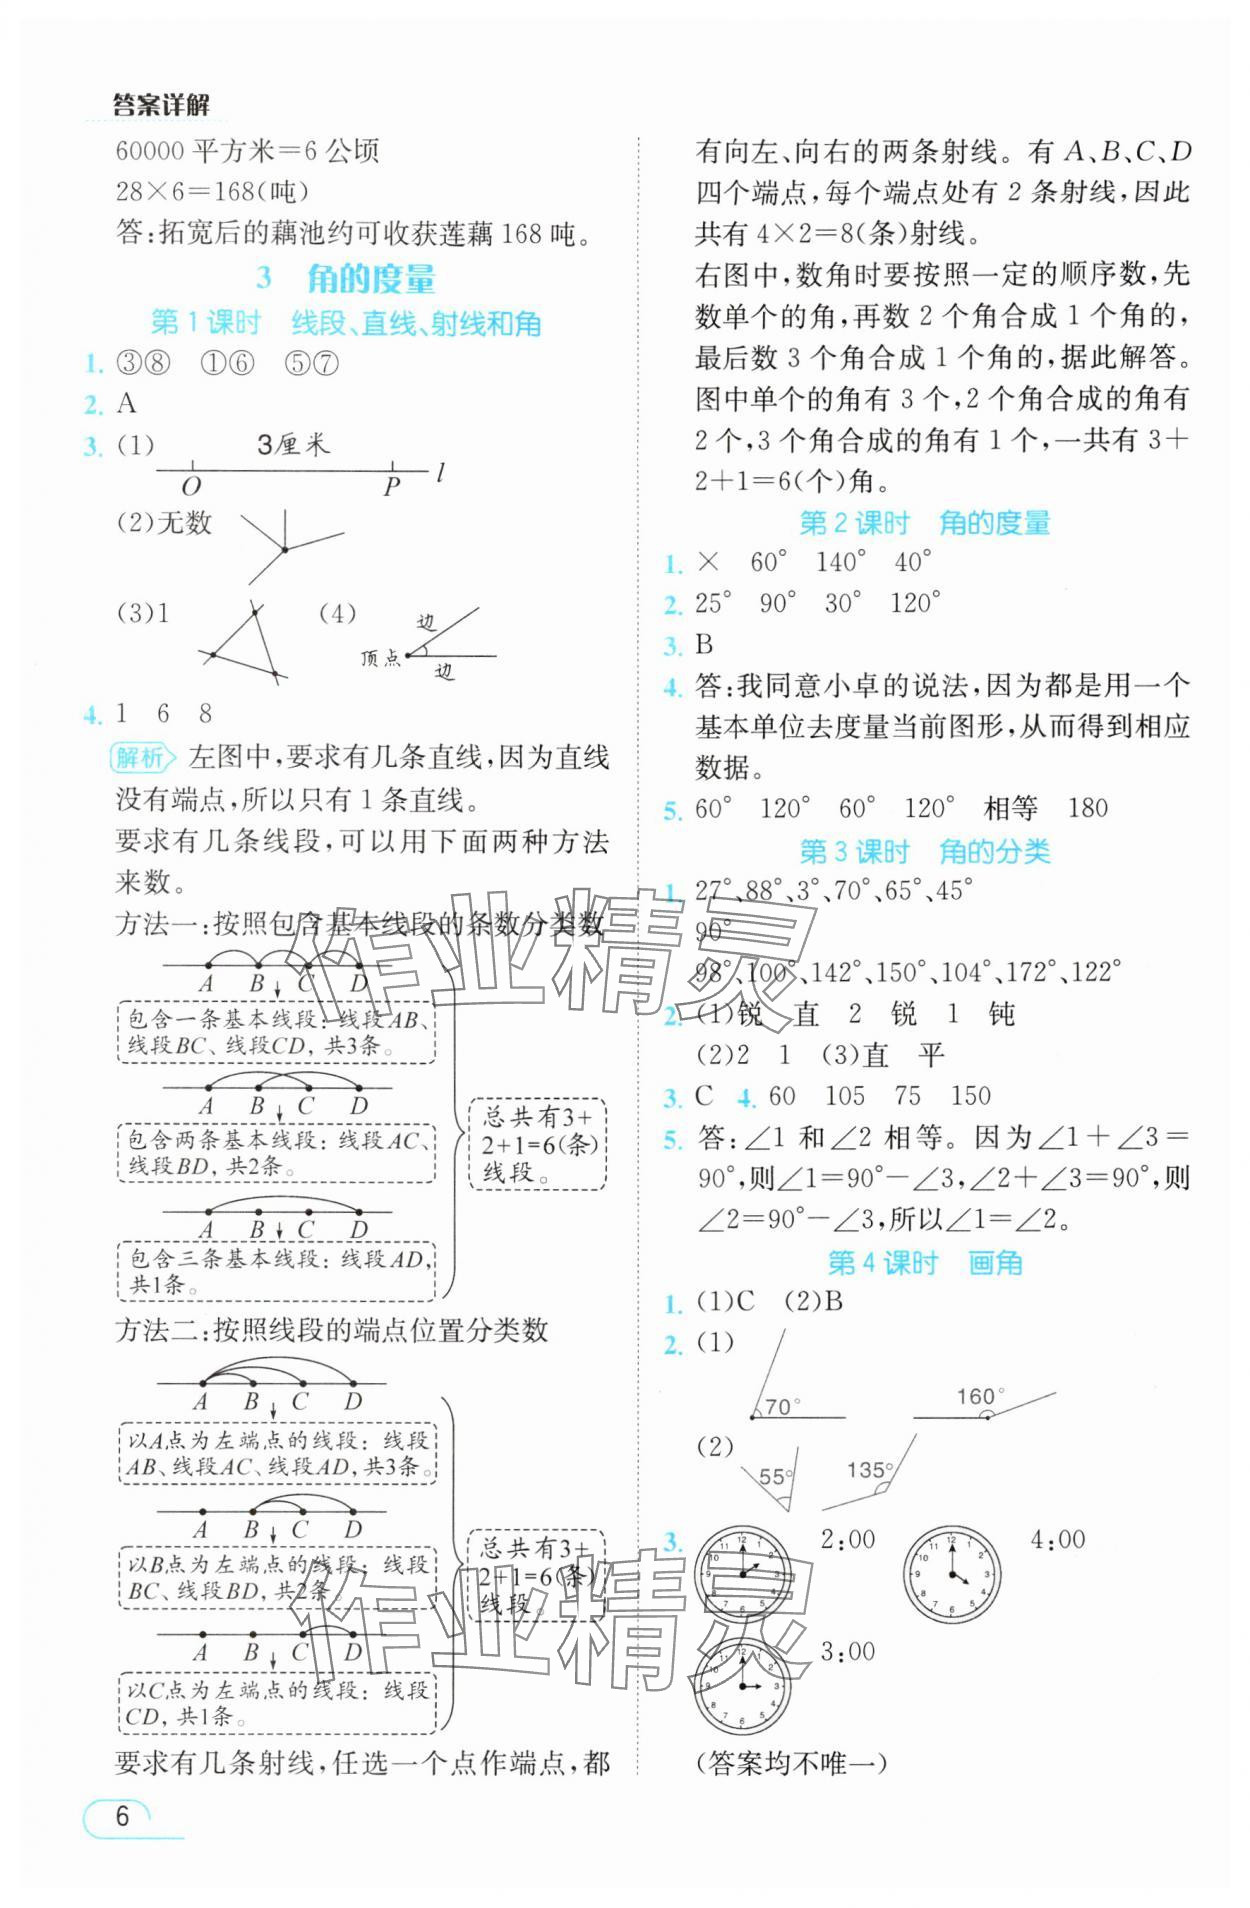 答案详解
60000平方米=6公顷
28×6=168(吨)
答:拓宽后的藕池约可收获莲藕168吨。
3 角的度量
第1课时 线段、直线、射线和角
1. ③⑧ ①⑥ ⑤⑦
2. A
3. (1) 3厘米
O P l
(2)无数
(3)1 (4)
边
顶点
边
4. 1 6 8
解析 左图中,要求有几条直线,因为直线
没有端点,所以只有1条直线。
要求有几条线段,可以用下面两种方法
来数。
方法一:按照包含基本线段的条数分类数
A B C D
包含一条基本线段:线段AB、
线段BC、线段CD,共3条。
A B C D
包含两条基本线段:线段AC、
线段BD,共2条。
A B C D
包含三条基本线段:线段AD,
共1条。
总共有3+
2+1=6(条)
线段。
方法二:按照线段的端点位置分类数
A B C D
以A点为左端点的线段:线段
AB、线段AC、线段AD,共3条。
A B C D
以B点为左端点的线段:线段
BC、线段BD,共2条。
A B C D
以C点为左端点的线段:线段
CD,共1条。
总共有3+
2+1=6(条)
线段。
要求有几条射线,任选一个点作端点,都
6
有向左、向右的两条射线。有A、B、C、D
四个端点,每个端点处有2条射线,因此
共有4×2=8(条)射线。
右图中,数角时要按照一定的顺序数,先
数单个的角,再数2个角合成1个角的,
最后数3个角合成1个角的,据此解答。
图中单个的角有3个,2个角合成的角有
2个,3个角合成的角有1个,一共有3+
2+1=6(个)角。
第2课时 角的度量
1. × 60° 140° 40°
2. 25° 90° 30° 120°
3. B
4. 答:我同意小卓的说法,因为都是用一个
基本单位去度量当前图形,从而得到相应
数据。
5. 60° 120° 60° 120° 相等 180
第3课时 角的分类
1. 27°、88°、3°、70°、65°、45°
90°
98°、100°、142°、150°、104°、172°、122°
2. (1)锐 直 2 锐 1 钝
(2)2 1 (3)直 平
3. C 4. 60 105 75 150
5. 答:∠1和∠2相等。因为∠1+∠3=
90°,则∠1=90°-∠3,∠2+∠3=90°,则
∠2=90°-∠3,所以∠1=∠2。
第4课时 画角
1. (1)C (2)B
2. (1)
70° 160°
(2)
55° 135°
3. 2:00 4:00
3:00
(答案均不唯一)
作业精灵
作业精灵